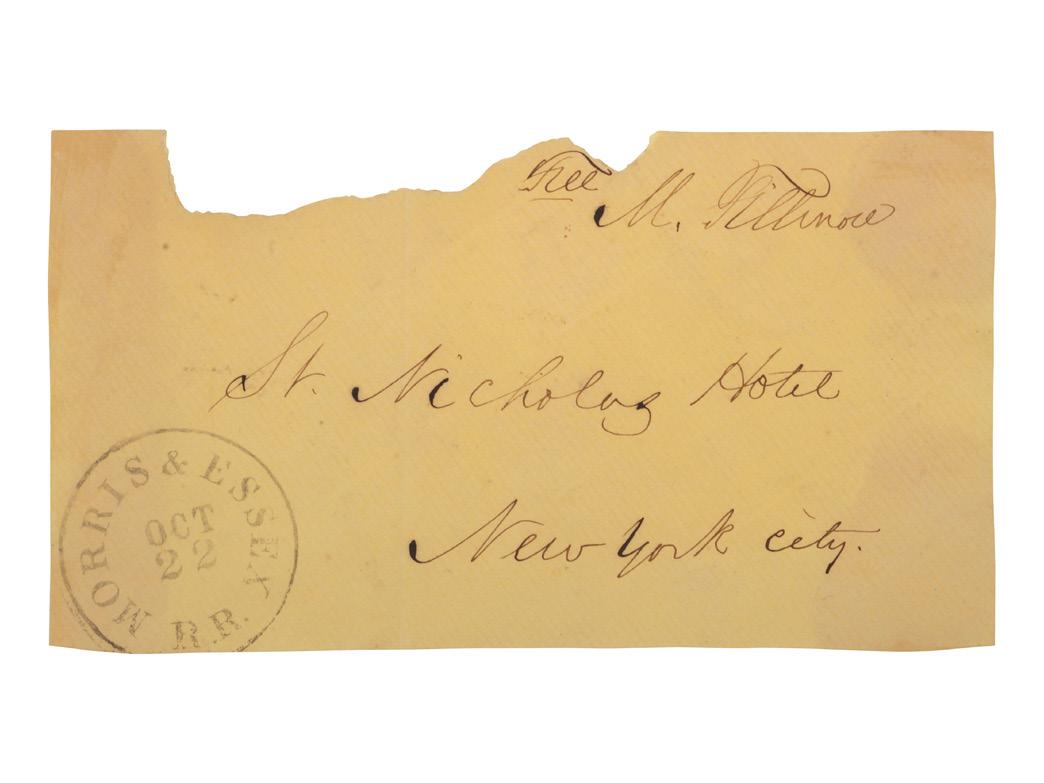 Free
M. Fillmore
St. Nicholas Hotel
New York city.
MORRIS & ESSEX R.R.
OCT
22